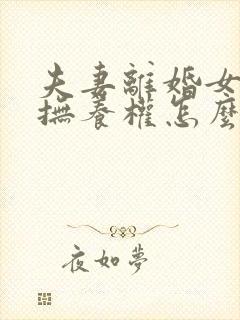 夫妻離婚女
撫養權怎麼
夜如夢